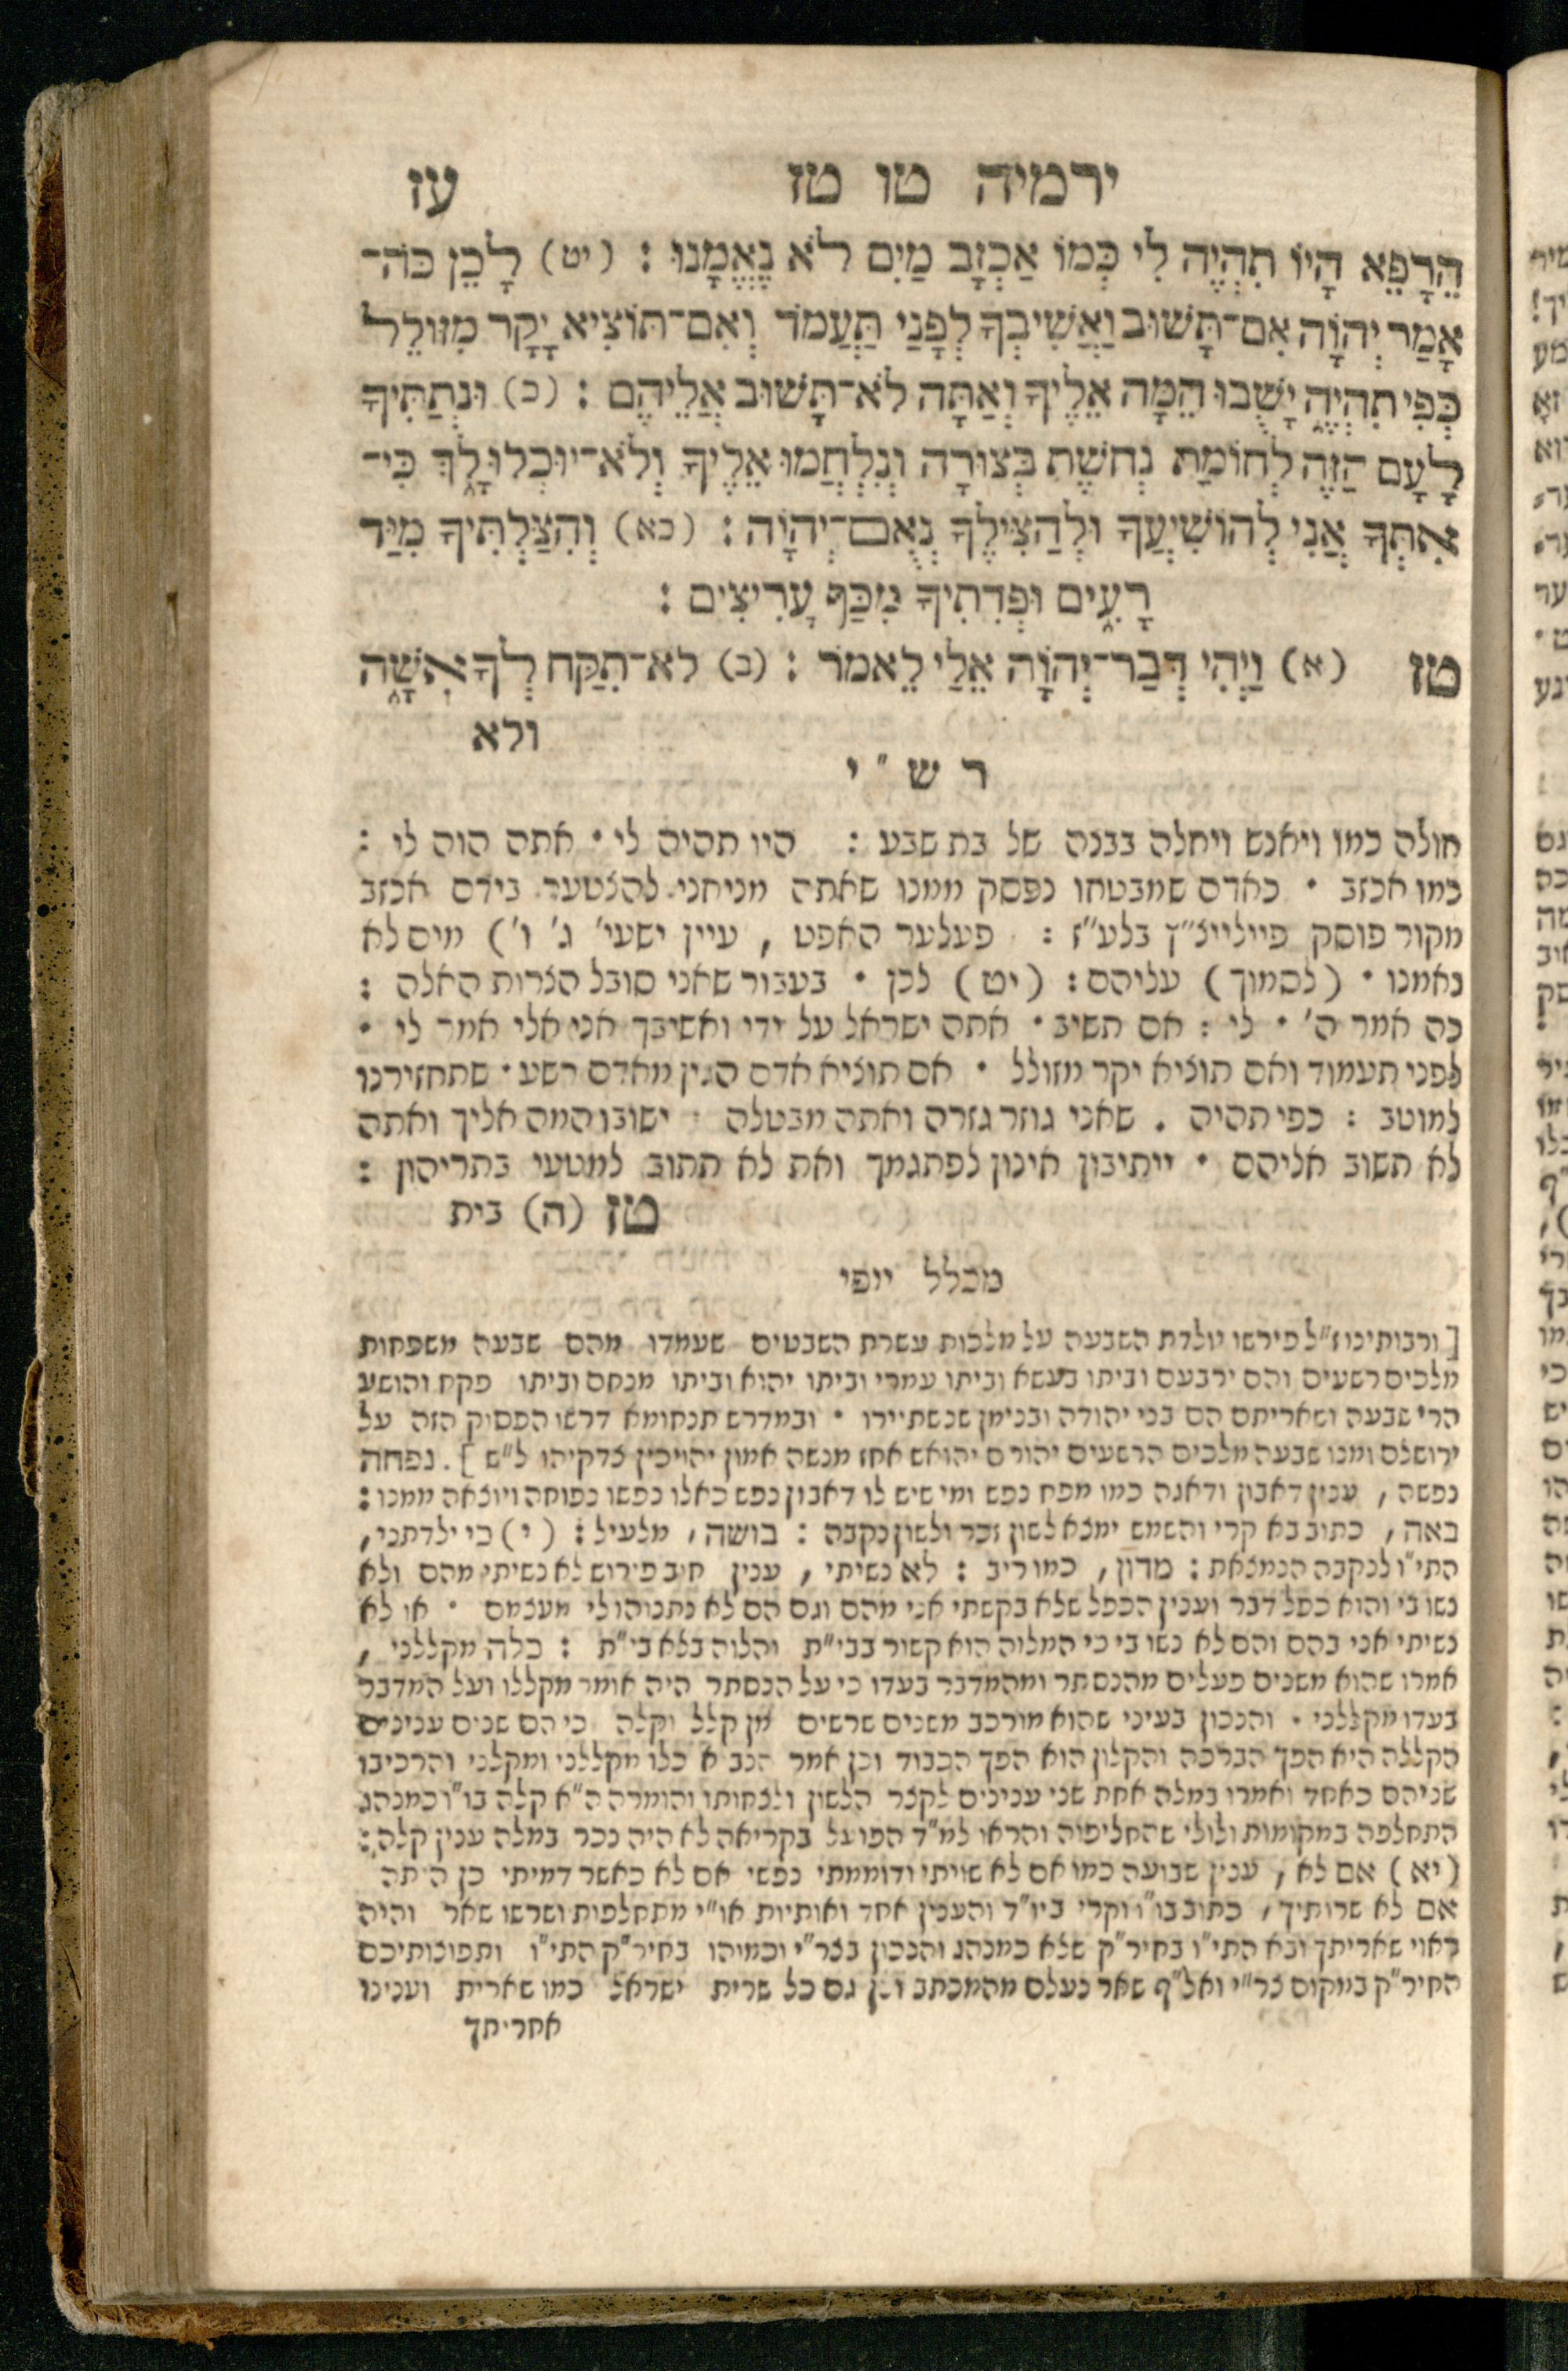 ירמיה טו טז עז
הֵרָפֵא הָיוֹ תִהְיֶה לִי כְּמוֹ אַכְזָב מַיִם לֹא נֶאֱמָנוּ : (יט) לָכֵן כֹּה־
אָמַר יְהוָֹה אִם־תָּשׁוּב וַאֲשִׁיבְךָ לְפָנַי תַּעֲמֹד וְאִם־תּוֹצִיא יָקָר מִזּוֹלֵל
כְּפִי תִהְיֶה יָשֻׁבוּ הֵמָּה אֵלֶיךָ וְאַתָּה לֹא־תָשׁוּב אֲלֵיהֶם : (כ) וּנְתַתִּיךָ
לָעָם הַזֶּה לְחוֹמַת נְחֹשֶׁת בְּצוּרָה וְנִלְחֲמוּ אֵלֶיךָ וְלֹא־יוּכְלוּ לָךְ כִּי־
אִתְּךָ אֲנִי לְהוֹשִׁיעֲךָ וּלְהַצִּילֶךָ נְאֻם־יְהוָֹה : (כא) וְהִצַּלְתִּיךָ מִיַּד
רָעִים וּפְדִתִיךָ מִכַּף עָרִיצִים :
טז (א) וַיְהִי דְבַר־יְהוָֹה אֵלַי לֵאמֹר : (ב) לֹא־תִקַּח לְךָ אִשָּׁה
ולא
ר ש " י
חולה כמו ויאנש ויחלה בבנה של בת שבע : היו תהיה לי · אתה הוה לי :
כמו אכזב · כאדם שמבטחו נפסק ממנו שאתה מניחני להצטער בידם אכזב
מקור פוסק פייליינ״ץ בלע״ז : פעלער האפט , עיין ישעי׳ ג׳ ו׳) מים לא
נאמנו · (לסמוך) עליהם : (יט) לכן · בעבור שאני סובל הצרות האלה :
כה אמר ה׳ · לי : אם תשיב · אתה ישראל על ידי ואשיבך אני אלי אמר לי ·
לפני תעמוד ואם תוציא יקר מזולל · אם תוציא אדם הגין מאדם רשע · שתחזירנו
למוטב : כפי תהיה . שאני גוזר גזרה ואתה מבטלה · ישובו המה אליך ואתה
לא תשוב אליהם · ייתיבון אינון לפתגמך ואת לא תתוב למטעי בתריהון :
טז (ה) בית
מכלל יופי
[ורבותינו ז״ל פירשו יולדת השבעה על מלכות עשרת השבטים שעמדו מהם שבעה משפחות
מלכים רשעים והם ירבעם וביתו בעשא וביתו עמרי וביתו יהוא וביתו מנחם וביתו פקח והושע
הרי שבעה ושאריתם הם בני יהודה ובנימן שנשתיירו · ובמדרש תנחומא דרשו הפסוק הזה על
ירושלם ומנו שבעה מלכים הרשעים יהורם יהואש אחז מנשה אמון יהויכין צדקיהו ל״ש]. נפחה
נפשה , ענין דאבון ודאגה כמו מפח נפש ומי שיש לו דאבון נפש כאלו נפשו נפוחה ויוצאה ממנו :
באה , כתוב בא קרי והשמש ימצא לשון זכר ולשון נקבה : בושה , מלעיל : (י) כי ילדתני ,
התי״ו לנקבה הנמצאת : מדון , כמו ריב : לא נשיתי , ענין חיב פירוש לא נשיתי מהם ולא
נשו בי והוא כפל דבר וענין הכפל שלא בקשתי אני מהם וגם הם לא נתנוהו לי מעצמם · או לא
נשיתי אני בהם והם לא נשו בי כי המלוה הוא קשור בבי״ת והלוה בלא בי״ת : כלה מקללני ,
אמרו שהוא משנים פעלים מהנסתר ומהמדבר בעדו כי על הנסתר היה אומר מקללו ועל המדבר
בעדו מקללני · והנכון בעיני שהוא מורכב משנים שרשים מן קלל וקלה כי הם שנים ענינים
הקללה היא הפך הברכה והקלון הוא הפך הכבוד וכן אמר הנביא כלו מקללני ומקלני והרכיבו
שניהם כאחד ואמרו במלה אחת שני ענינים לקצר הלשון ולצחותו והומרה ה״א קלה בו״ו כמנהג
התחלפה במקומות ולולי שהחליפוה והראו למ״ד הפועל בקריאה לא היה נכר במלה ענין קלה :
(יא) אם לא , ענין שבועה כמו אם לא שויתי ודוממתי נפשי אם לא כאשר דמיתי כן היתה
אם לא שרותיך , כתוב בו״ו וקרי ביו״ד והענין אחד ואותיות או״י מתחלפות ושרשו שאר והיה
ראוי שאריתך ובא התי״ו בחיר״ק שלא כמנהג והנכון בצר״י וכמיהו בחיר״ק התי״ו ותפוצותיכם
החיר״ק במקום צר״י ואל״ף שאר נעלם מהמכתב וכן גם כל שרית ישראל כמו שארית וענינו
אחריתך